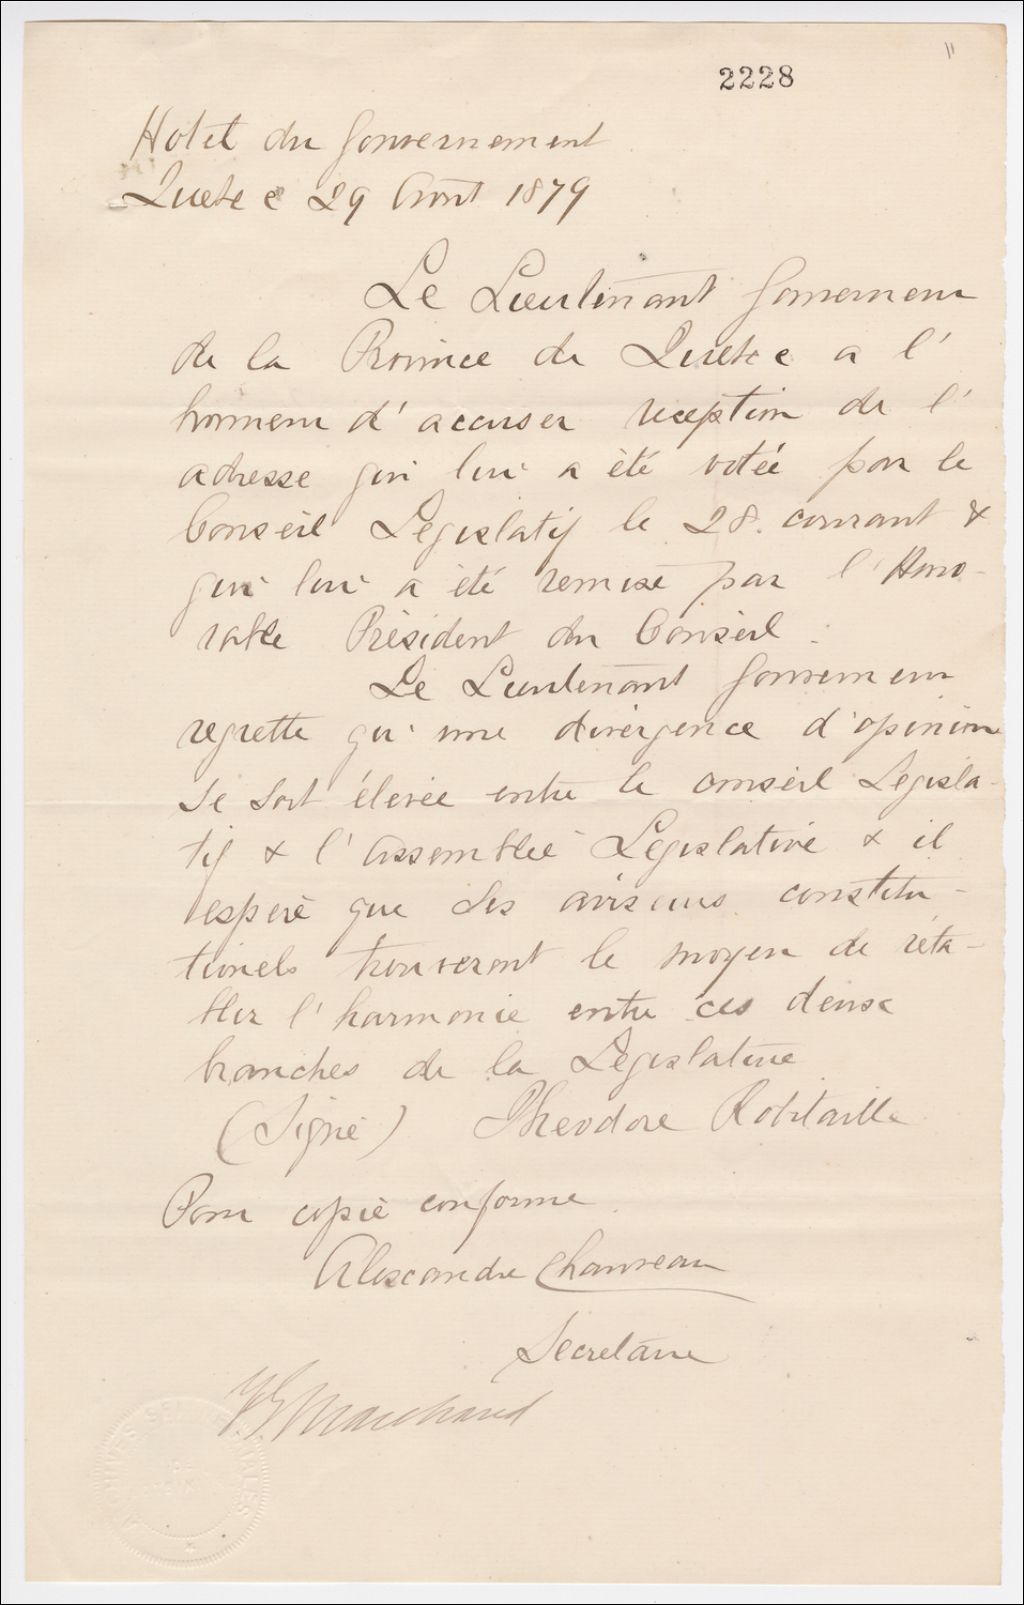 11
2228
Hotel du Gouvernement
Quebec 29 Août 1879
Le Lieutenant Gouverneur
de la Province de Quebec a l'
honneur d'accuser reception de l'
adresse qui lui a été votée par le
Conseil Legislatif le 28. courant &
qui lui a été remise par l'Hono-
rable Président du Conseil.
Le Lieutenant Gouverneur
regrette qu'une divergence d'opinion
se soit élevée entre le conseil Legisla-
tif & l'assemblée Législative & il
espère que ses aviseurs constitu-
tionels trouveront le moyen de réta-
blir l'harmonie entre ces deux
branches de la Législature
(Signé) Theodore Robitaille
Pour copie conforme
Alexandre Chauveau
Secretaire
F.G. Marchand
ARCHIVES SEIGNEURIALES